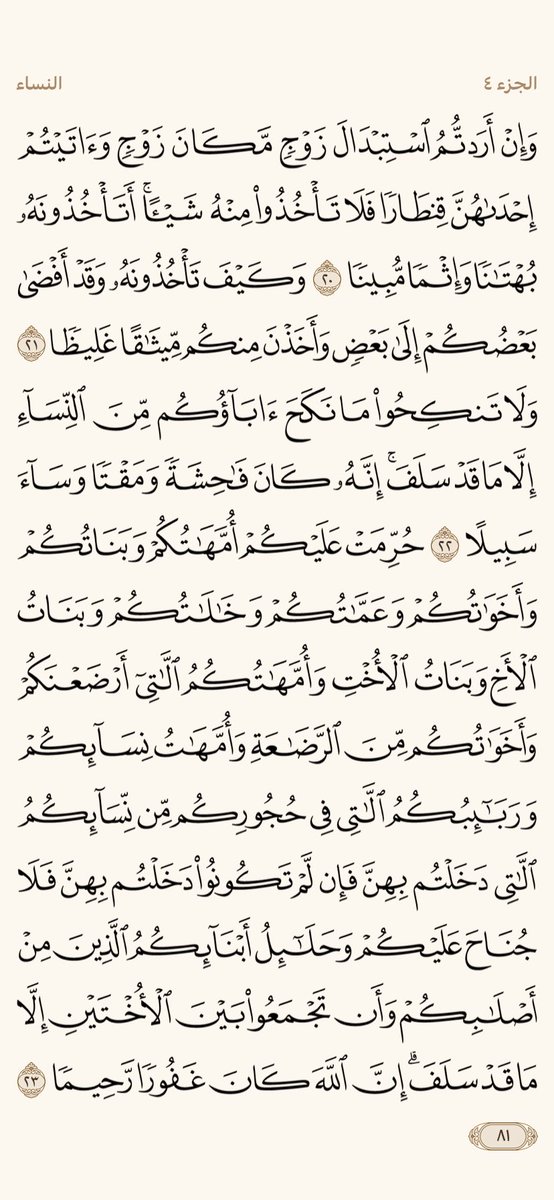 الجزء ٤
النساء
وَإِنْ أَرَدتُّمُ ٱسْتِبْدَالَ زَوْجٍ مَّكَانَ زَوْجٍ وَءَاتَيْتُمْ
إِحْدَىٰهُنَّ قِنطَارًا فَلَا تَأْخُذُوا۟ مِنْهُ شَيْـًٔا ۚ أَتَأْخُذُونَهُۥ
بُهْتَـٰنًا وَإِثْمًا مُّبِينًا ٢٠ وَكَيْفَ تَأْخُذُونَهُۥ وَقَدْ أَفْضَىٰ
بَعْضُكُمْ إِلَىٰ بَعْضٍ وَأَخَذْنَ مِنكُم مِّيثَـٰقًا غَلِيظًا ٢١
وَلَا تَنكِحُوا۟ مَا نَكَحَ ءَابَآؤُكُم مِّنَ ٱلنِّسَآءِ
إِلَّا مَا قَدْ سَلَفَ ۚ إِنَّهُۥ كَانَ فَـٰحِشَةً وَمَقْتًا وَسَآءَ
سَبِيلًا ٢٢ حُرِّمَتْ عَلَيْكُمْ أُمَّهَـٰتُكُمْ وَبَنَاتُكُمْ
وَأَخَوَٰتُكُمْ وَعَمَّـٰتُكُمْ وَخَـٰلَـٰتُكُمْ وَبَنَاتُ
ٱلْأَخِ وَبَنَاتُ ٱلْأُخْتِ وَأُمَّهَـٰتُكُمُ ٱلَّـٰتِىٓ أَرْضَعْنَكُمْ
وَأَخَوَٰتُكُم مِّنَ ٱلرَّضَـٰعَةِ وَأُمَّهَـٰتُ نِسَآئِكُمْ
وَرَبَـٰٓئِبُكُمُ ٱلَّـٰتِى فِى حُجُورِكُم مِّن نِّسَآئِكُمُ
ٱلَّـٰتِى دَخَلْتُم بِهِنَّ فَإِن لَّمْ تَكُونُوا۟ دَخَلْتُم بِهِنَّ فَلَا
جُنَاحَ عَلَيْكُمْ وَحَلَـٰٓئِلُ أَبْنَآئِكُمُ ٱلَّذِينَ مِنْ
أَصْلَـٰبِكُمْ وَأَن تَجْمَعُوا۟ بَيْنَ ٱلْأُخْتَيْنِ إِلَّا
مَا قَدْ سَلَفَ ۗ إِنَّ ٱللَّهَ كَانَ غَفُورًا رَّحِيمًا ٢٣
٨١